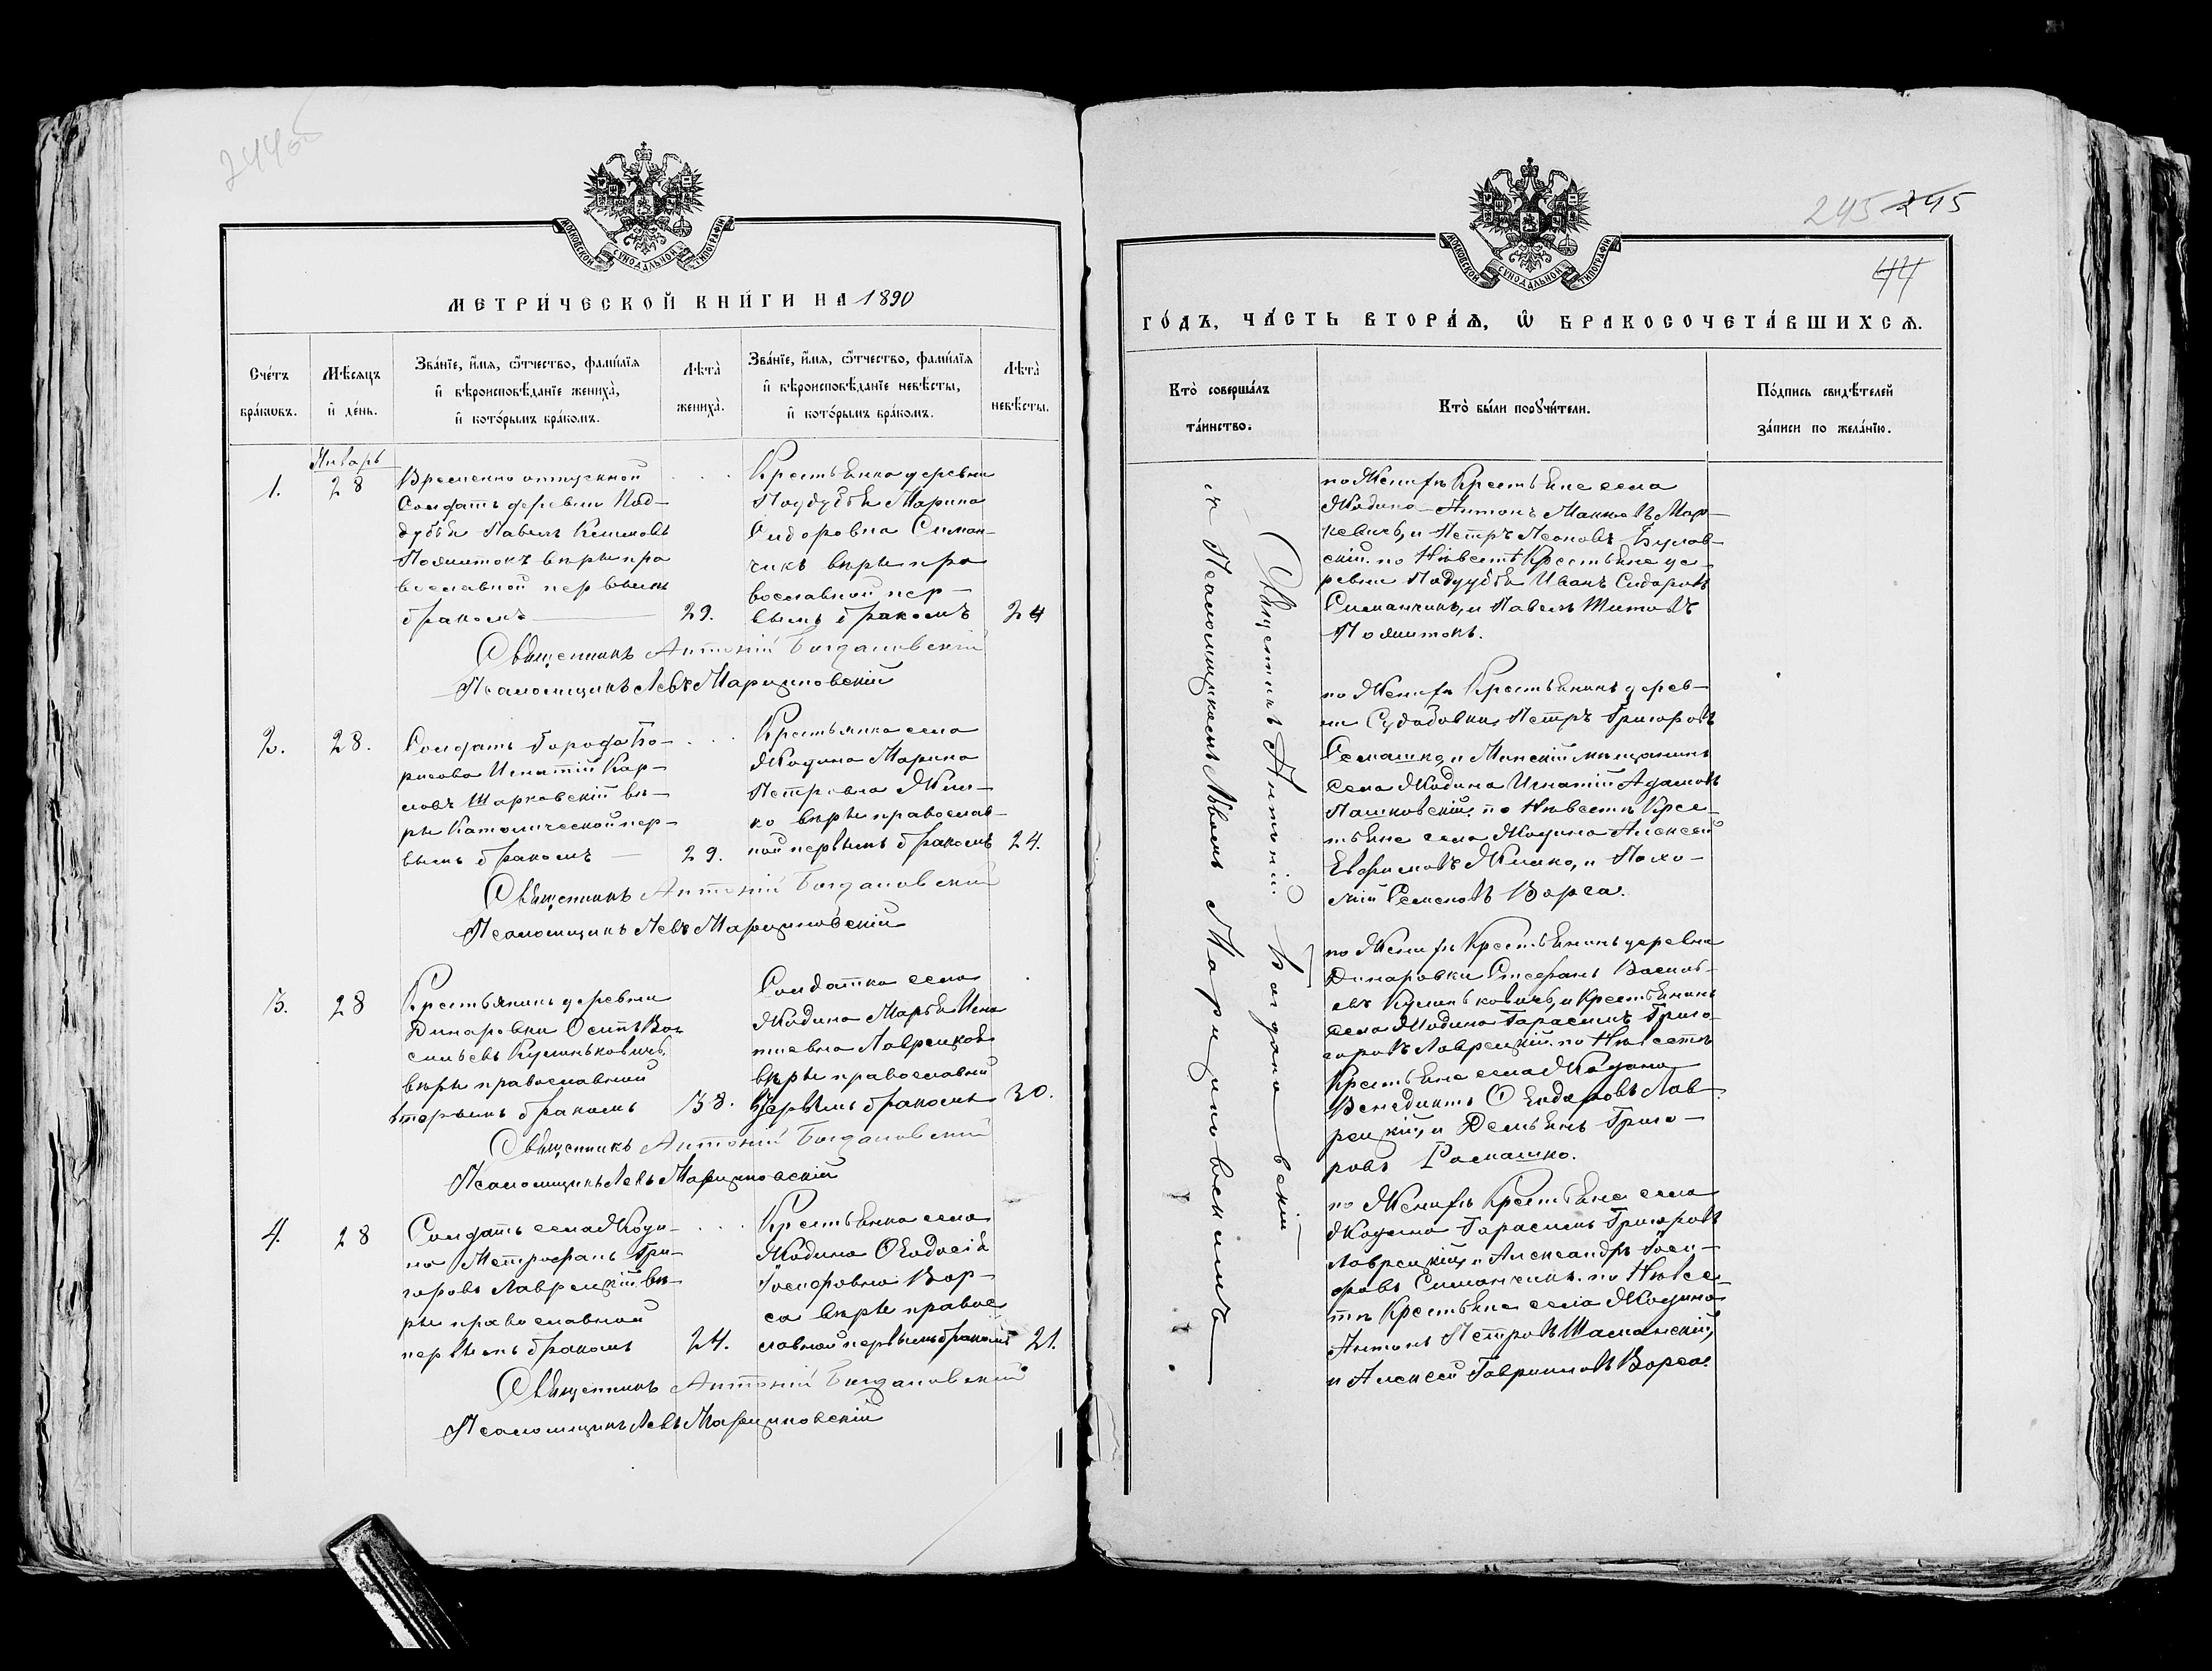 244об
МОСКОВСКОЙ СѴНОДАЛЬНОЙ ТИПОГРАФІИ
МЕТРИ́ЧЕСКОЙ КНИ́ГИ НА 1890
Сче́тъ бра́ковъ.
Мѣ́сяцъ и҆ де́нь.
Зва́нїе, и҆́мѧ, ѻ҆́тчество, фами́лїѧ и҆ вѣроисповѣ́данїе жениха̀, и҆ кото́рымъ бра́комъ.
Лѣта̀ жениха̀.
Зва́нїе, и҆́мѧ, ѻ҆́тчество, фами́лїѧ и҆ вѣроисповѣ́данїе невѣ́сты, и҆ кото́рымъ бра́комъ.
Лѣта̀ невѣ́сты.
Январь
1.
28
Временно отпускной
Солдатъ деревни Под-
дубья Павелъ
вѣры пра
вославной первымъ
бракомъ
29.
Крестьянка деревни
Поддубья Марина
Сидоровна Симан-
чикъ вѣры пра
вославной пер-
вымъ бракомъ
24
Священникъ Антоній Богдановскій
Псаломщикъ Левъ Марциновскій
2.
28.
Солдатъ Города Бо-
рисова Игнатій Кар-
ловъ Шарковскій вѣ-
ры Католической пер-
вымъ бракомъ
29.
Крестьянка села
Жодина Марина
Петровна Жил-
ко вѣры православ-
ной первымъ бракомъ
24.
Священникъ Антоній Богдановскій
Псаломщикъ Левъ Марциновскій
3.
28
Крестьянинъ деревни
Динаровки Осипъ Ва-
сильевъ Кулиньковичъ
вѣры православной
вторымъ бракомъ
38.
Солдатка села
Жодина Марья Игна
тіевна Лаврецкая
вѣры православной
бракомъ
30.
Священникъ Антоній Богдановскій
Псаломщикъ Левъ Марциновскій
4.
28
Солдатъ села Жоди-
на Метрофанъ Гри-
горовъ Лаврецкій вѣ-
ры православной
первымъ бракомъ
24.
Крестьянка села
Жодина Ѳеодосія
Іосифовна Вор-
са вѣры правос
лавной первымъ бракомъ
21.
Священникъ Антоній Богдановскій
Псаломщикъ Левъ Марциновскій
245 245
44
МОСКОВСКОЙ СѴНОДАЛЬНОЙ ТИПОГРАФІИ
ГО́ДЪ, ЧА́СТЬ ВТОРА́Ѧ, Ѽ БРАКОСОЧЕТА́ВШИХСѦ.
Кто̀ соверша́лъ та́инство.
Кто̀ бы́ли порꙋчи́тели.
По́дпись свидѣ́телей за́писи по жела́нїю.
Священникъ Антоній Богдановскій
съ Псаломщикомъ Львомъ Марциновскимъ
по Женихѣ Крестьяне села
Жодина Антонъ Мар-
кевичъ, и Петръ Леоновъ Булав-
скій. по Невѣстѣ Крестьяне де-
ревни Поддубья Иванъ Сидоровъ
Симанчикъ, и Павелъ Титовъ
по Женихѣ Крестьянинъ дерев-
ни Судобовки Петръ Григоровъ
Семашко, и Минскій мѣщанинъ
села Жодина Игнатій Адамовъ
Пашковскій. по Невѣстѣ Крес-
тьяне села Жодина Алексей
Ефримовъ Жилко, и Пахо-
мій Семеновъ Ворса.
по Женихѣ Крестьянинъ деревни
Динаровки Стефанъ Василь-
евъ Кулиньковичъ, и Крестьянинъ
села Жодина Гарасимъ Григо
горовъ Лаврецкій. по Невѣстѣ
Крестьяне села Жодина
Венедиктъ Ѳеодоровъ Лав-
рецкій, и Демьянъ Григо-
ровъ Ромашко.
по Женихѣ Крестьяне села
Жодина Гарасимъ Григоровъ
Лаврецкій, и Александръ Іоси-
фовъ Симанчикъ. по Невѣс-
тѣ Крестьяне села Жодина
Антонъ Петровъ Шаманскій,
и Алексей Гавриловъ Ворса.